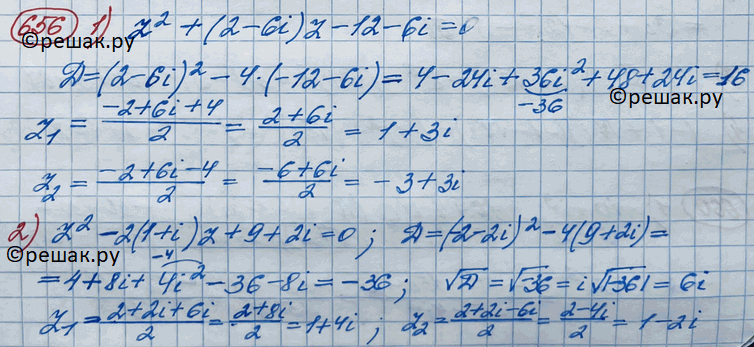 656 1) z² + (2-6i)z - 12 - 6i = 0
©решак.ру
D = (2-6i)² - 4·(-12-6i) = 4 - 24i + 36i² + 48 + 24i = 16
-36
©решак.ру
z₁ = (-2+6i+4)/2 = (2+6i)/2 = 1+3i
z₂ = (-2+6i-4)/2 = (-6+6i)/2 = -3+3i
2) z² - 2(1+i)z + 9 + 2i = 0; D = (-2-2i)² - 4(9+2i) =
©решак.ру
-4
= 4 + 8i + 4i² - 36 - 8i = -36; √D = √-36 = i√|-36| = 6i
z₁ = (2+2i+6i)/2 = (2+8i)/2 = 1+4i; z₂ = (2+2i-6i)/2 = (2-4i)/2 = 1-2i